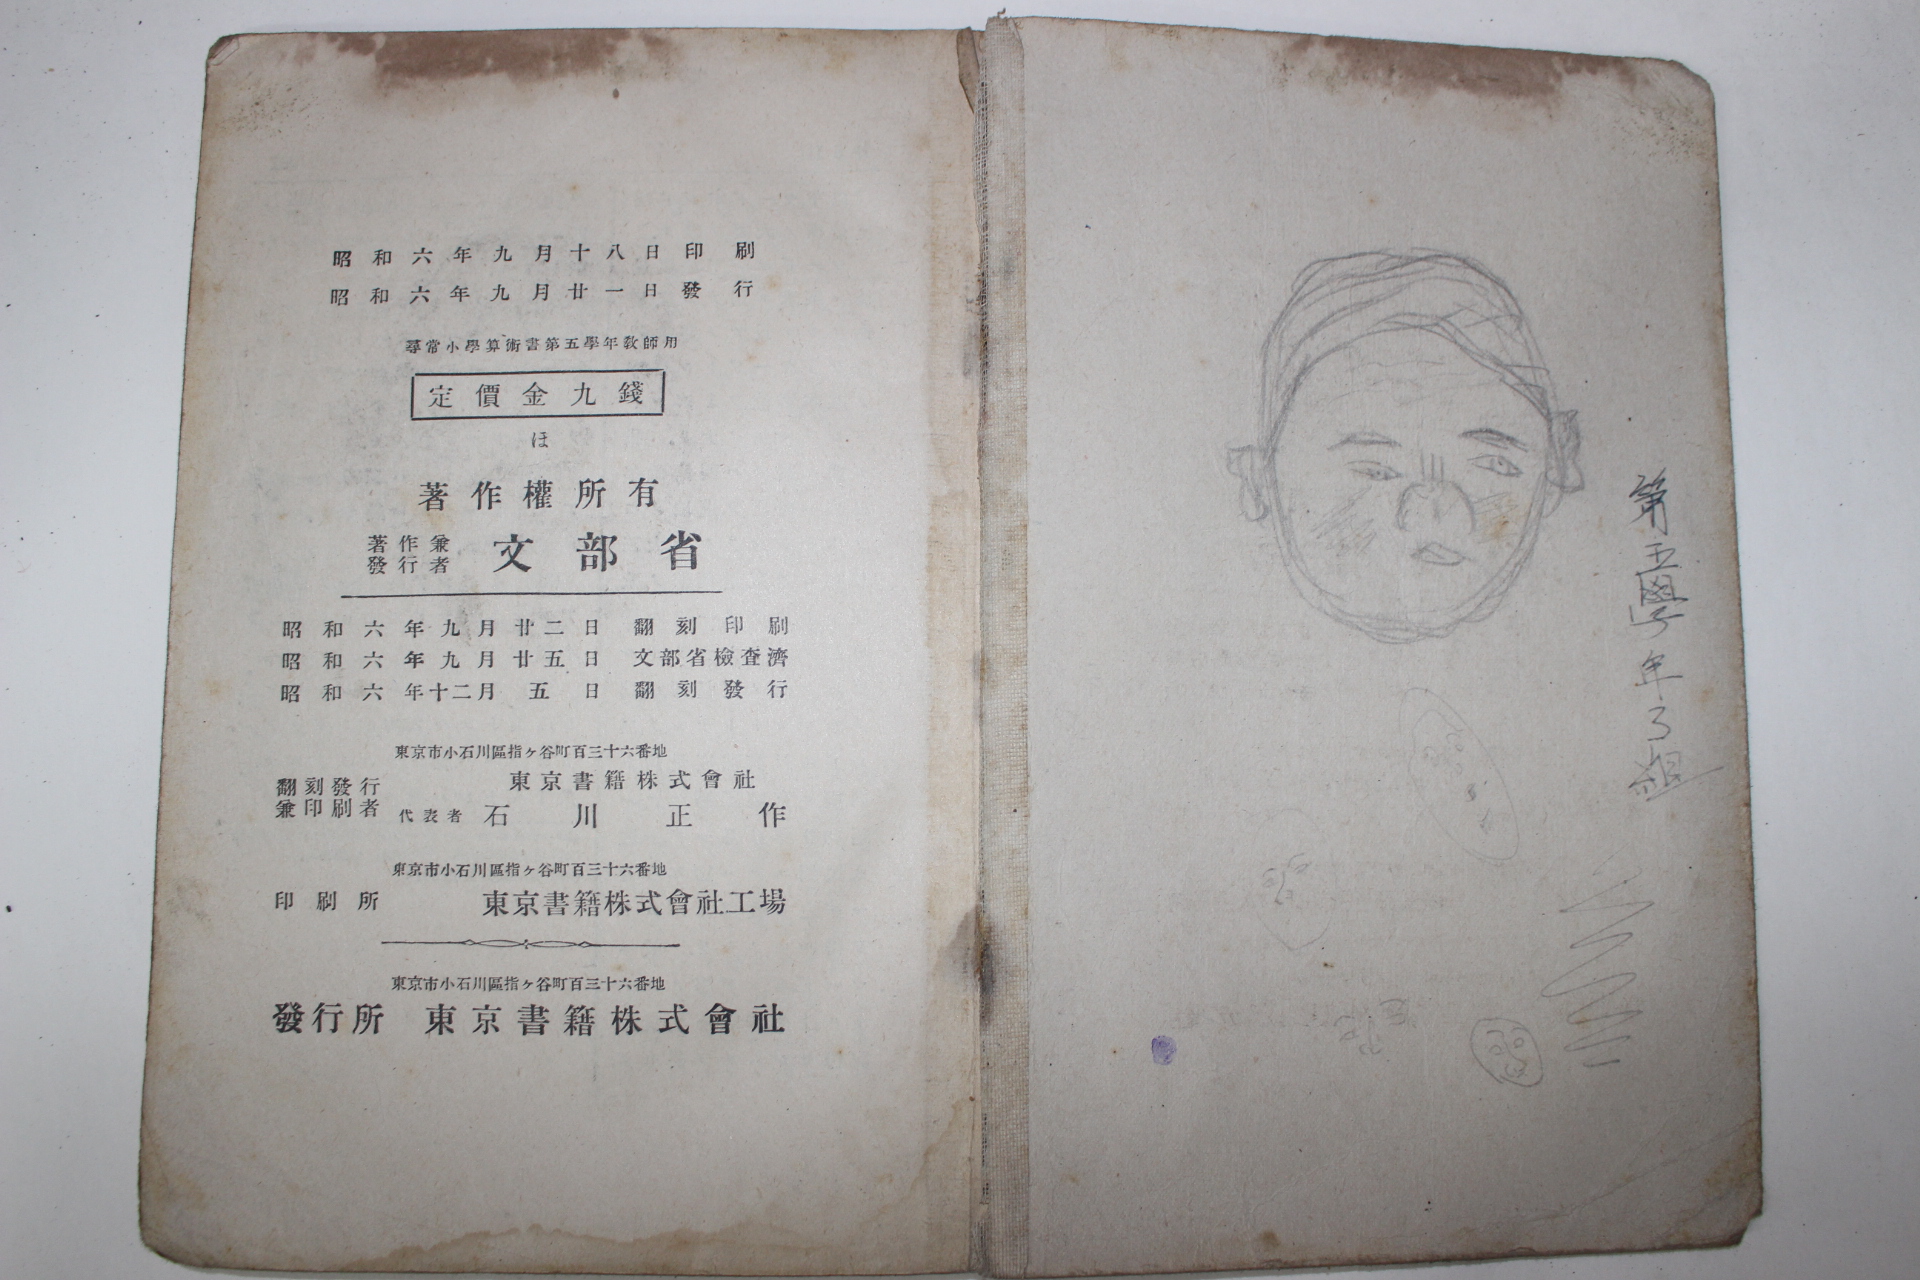 昭和六年九月十八日印刷
昭和六年九月廿一日發行
尋常小學算術書第五學年敎師用
定價金九錢
ほ
著作權所有
著作兼發行者 文部省
昭和六年九月廿二日 翻刻印刷
昭和六年九月廿五日 文部省檢查濟
昭和六年十二月五日 翻刻發行
東京市小石川區指ヶ谷町百三十六番地
翻刻發行兼印刷者 東京書籍株式會社
代表者 石川正作
東京市小石川區指ヶ谷町百三十六番地
印刷所 東京書籍株式會社工場
東京市小石川區指ヶ谷町百三十六番地
發行所 東京書籍株式會社
第五學年 組